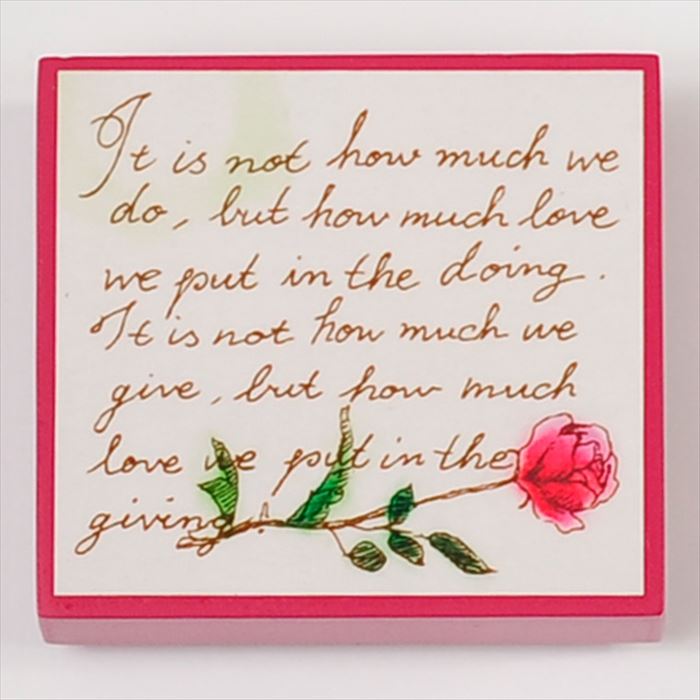 It is not how much we
do, but how much love
we put in the doing.
It is not how much we
give, but how much
love we put in the
giving!